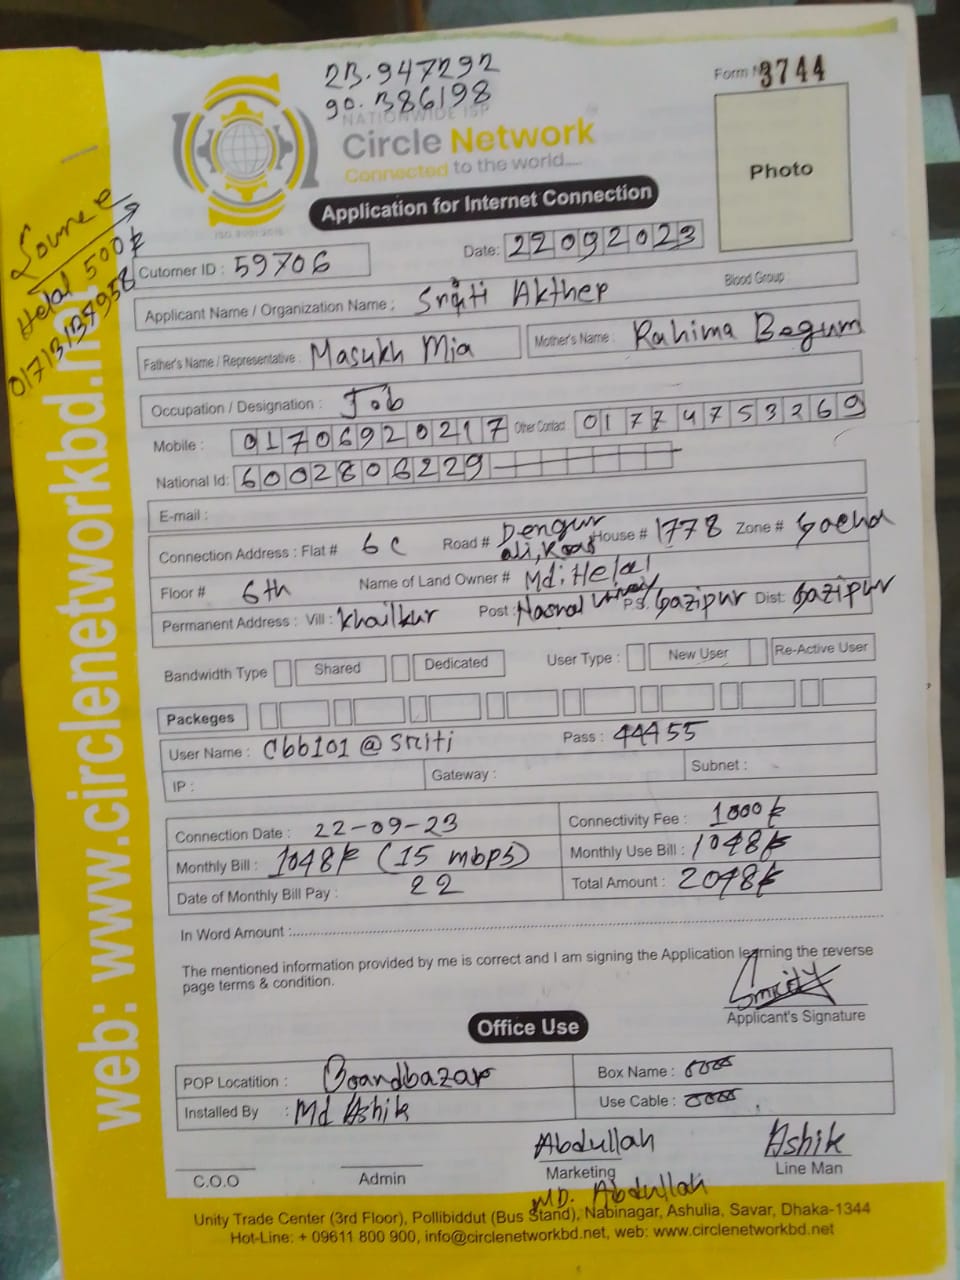 23.947292
90.386198
Form No 3744
NATIONWIDE ISP
Circle Network
Connected to the world....
ISO 9001:2015
Photo
Application for Internet Connection
Source
Helal 500৳
01713137958
Date: 22092023
Cutomer ID : 59706
Blood Group :
Applicant Name / Organization Name : Sriti Akther
Father's Name / Representative : Masukh Mia Mother's Name : Rahima Begum
Occupation / Designation : Job
Mobile : 01706920217 Other Contact 01774753269
National Id: 6002806229
E-mail :
Connection Address : Flat # 6c Road # Dengur ali, Road House # 1778 Zone # Gacha
Floor # 6th Name of Land Owner # Md: Helal
Permanent Address : Vill : Khailkur Post : P.S. Gazipur Dist: Gazipur
Bandwidth Type Shared Dedicated User Type : New User Re-Active User
Packeges
User Name : cbb101@sriti Pass : 44455
IP : Gateway : Subnet :
Connection Date : 22-09-23 Connectivity Fee : 1000৳
Monthly Bill : 1048৳ (15 mbps) Monthly Use Bill : 1048৳
Date of Monthly Bill Pay : 22 Total Amount : 2048৳
In Word Amount :
The mentioned information provided by me is correct and I am signing the Application learning the reverse
page terms & condition.
Smrity
Applicant's Signature
Office Use
POP Locatition : Boardbazar Box Name :
Installed By : Md Ashik Use Cable :
Abdullah Ashik
C.O.O Admin Marketing Line Man
MD. Abdullah
Unity Trade Center (3rd Floor), Pollibiddut (Bus Stand), Nabinagar, Ashulia, Savar, Dhaka-1344
Hot-Line: + 09611 800 900, info@circlenetworkbd.net, web: www.circlenetworkbd.net
web: www.circlenetworkbd.net